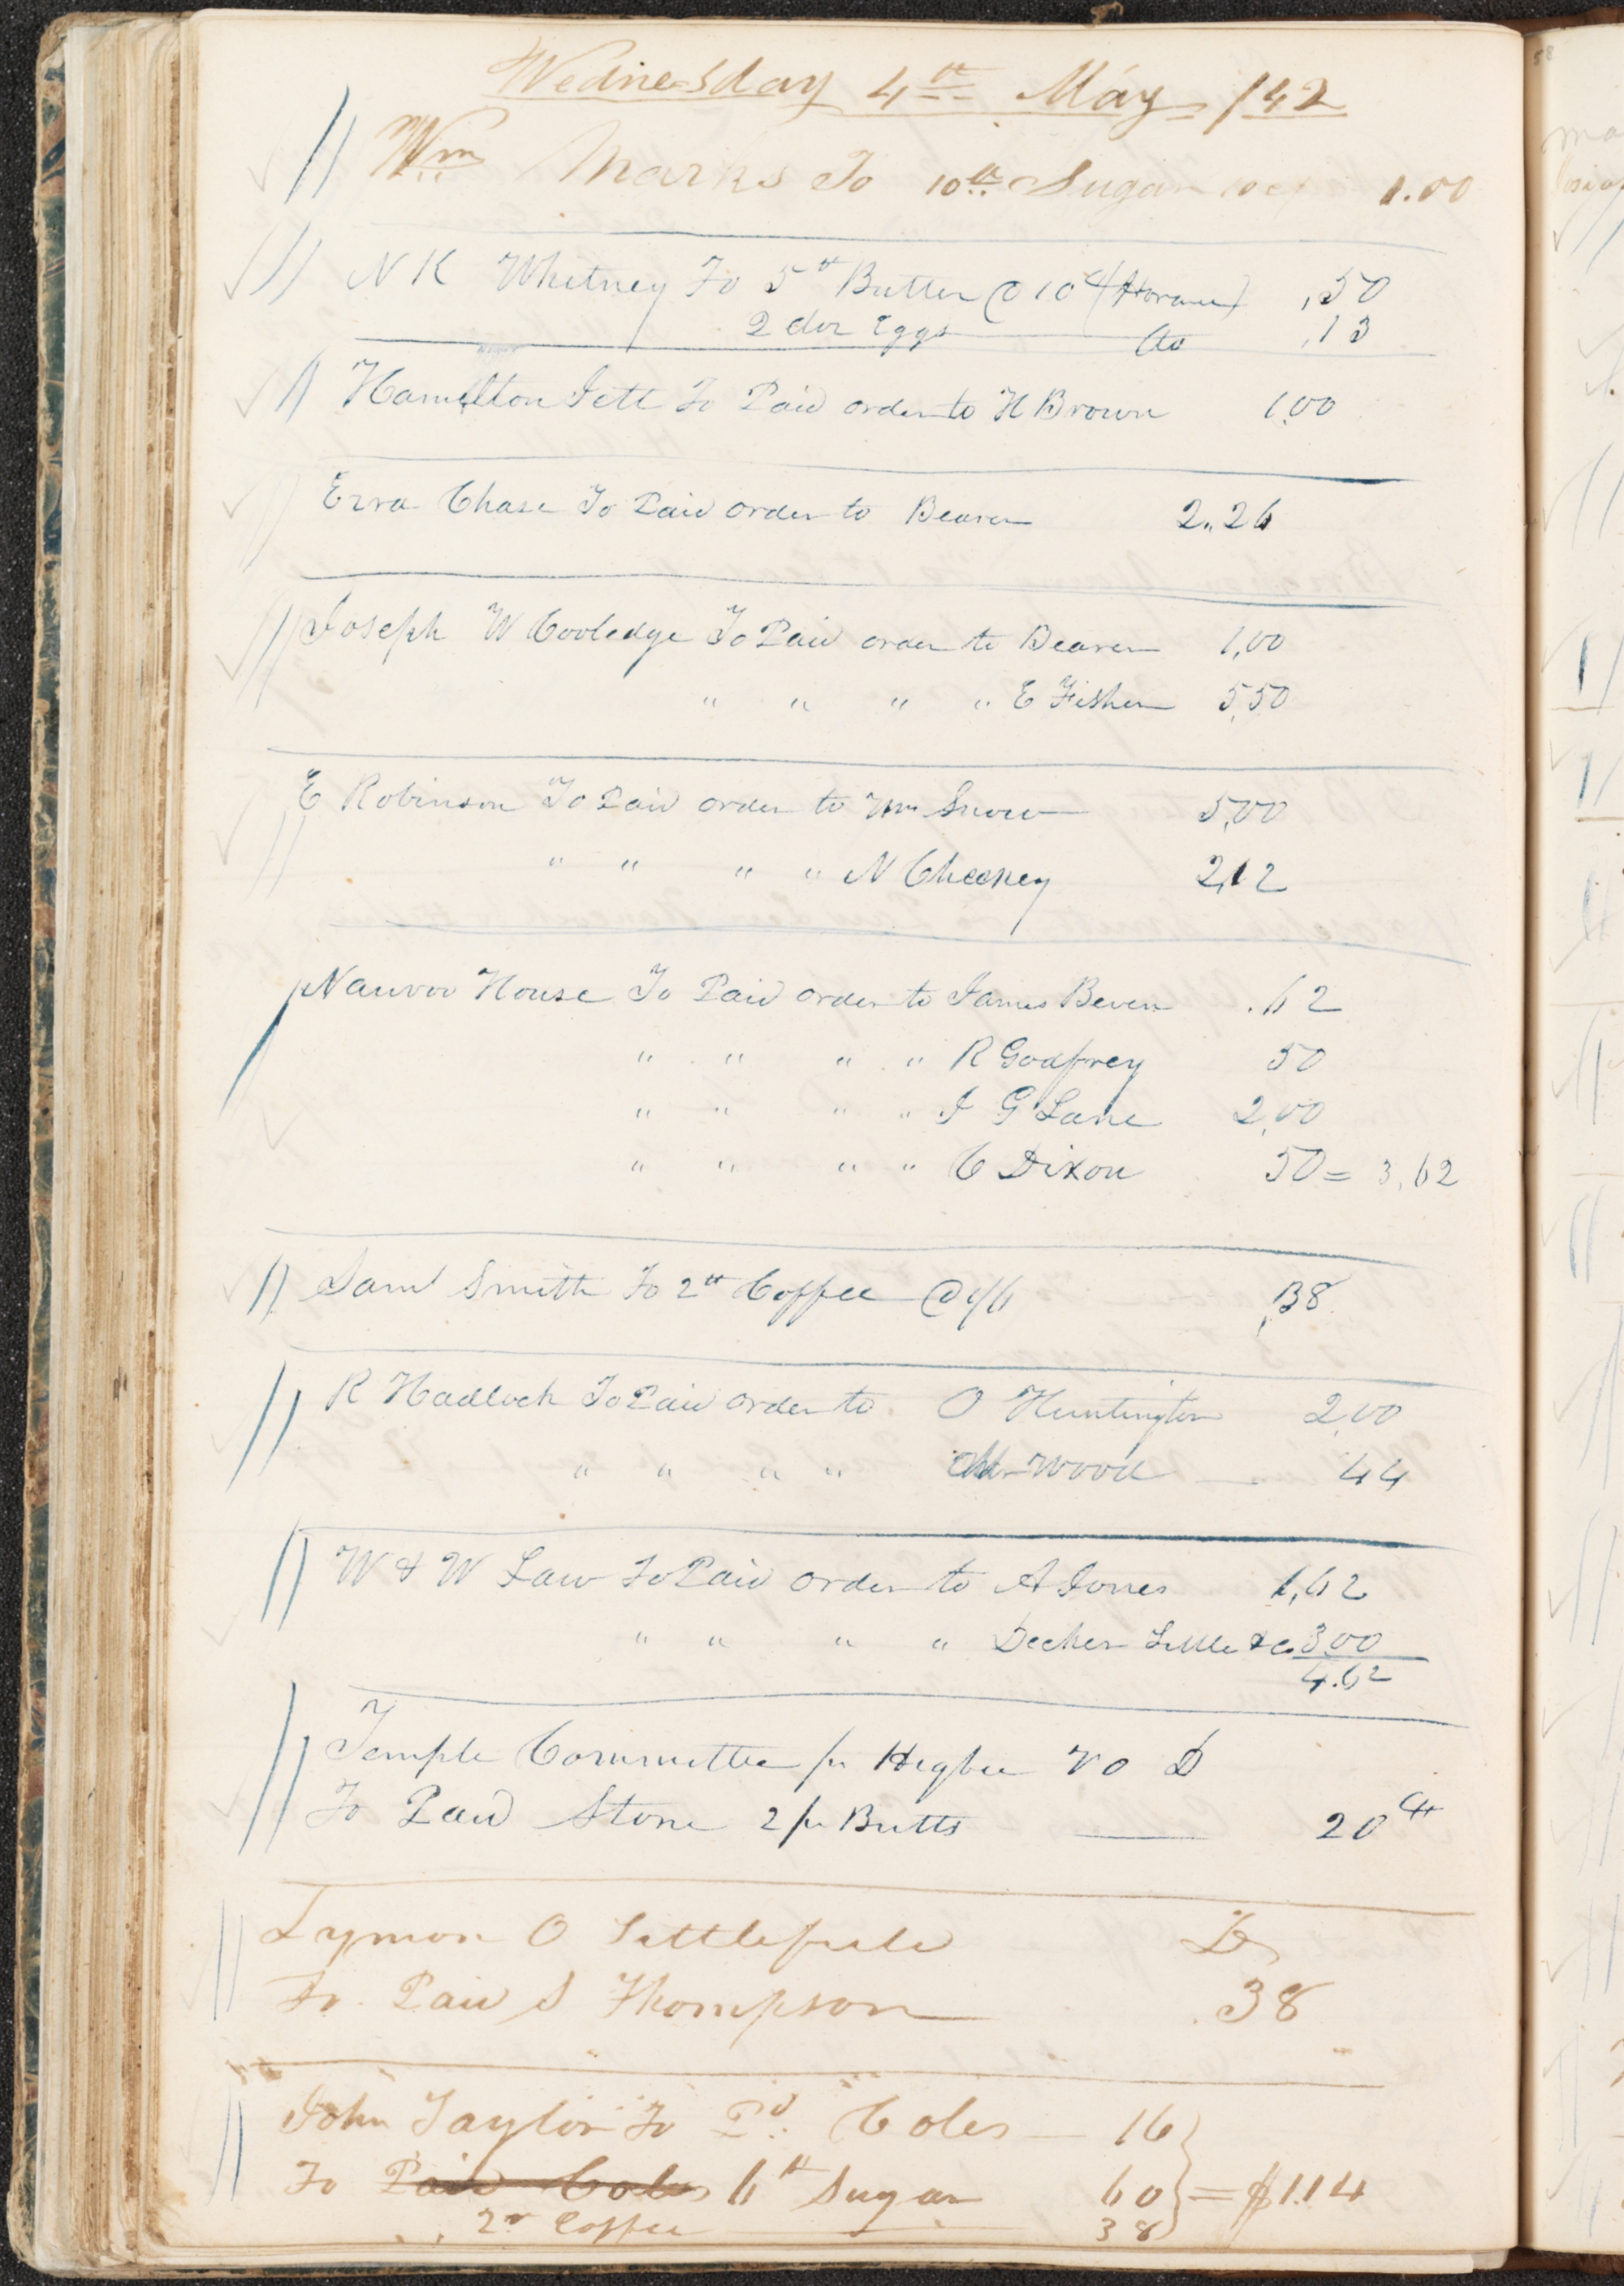 Wednesday 4th May /42
Wm Marks To 10lb Sugar 10c/ 1.00
N K Whitney To 5lb Butter @ 10c/ (Horace) ,50
2 doz Eggs do ,13
Hamilton Jett To Paid order to H Brown 1,00
Ezra Chase To Paid order to Bearer 2..26
Joseph W Cooledge To Paid order to Bearer 1,00
" " " " E Fisher 5,50
E Robinson To Paid order to Wm Snow 5,00
" " " " N Cheeney 2,12
Nauvoo House To Paid order to James Beven .62
" " " " R Godfrey 50
" " " " J G Lane 2,00
" " " " C Dixon 50 = 3,62
Saml Smith To 2lb Coffee @ 1/6 ,38
R Hadlock To Paid order to O Huntington 2,00
" " " " Wood 44
W & W Law To Paid order to A Jones 1,62
" " " " Decker Little & Co 3,00
4.62
Temple Committee pr Higbee D
To Paid Stone 2 pr Butts 20
Lymon O Littlefield Dr
To Paid S Thompson .38
John Taylor To Pd. Coles 16
To Paid Coles 6lb Sugar 60 = $1.14
2lb Coffee 38